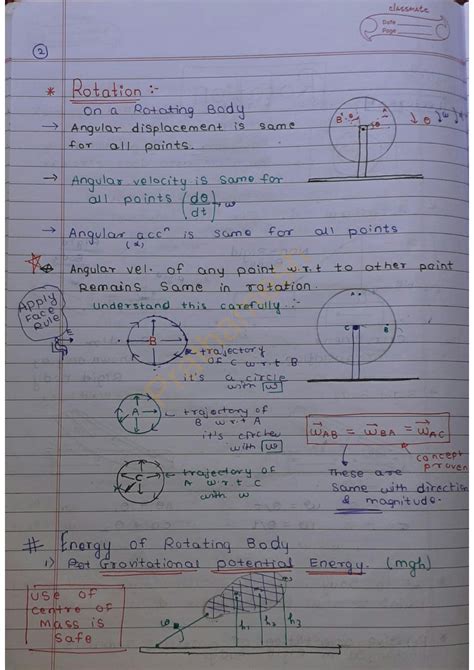 classmate
Date
Page
2
* Rotation :-
On a Rotating Body
→ Angular displacement is same
for all points.
B θ A
θ
↓ θ ↓ω
→ Angular velocity is same for
all points (dθ/dt) → ω
→ Angular accⁿ is same for all points
(α)
Angular vel. of any point w.r.t to other point
remains same in rotation.
understand this carefully :-
Apply
Face
Rule
B
→ trajectory
of C w r t B
it's a circle
with ω
A
C B
A
→ trajectory of
B w r t A
it's circle
with ω
ω⃗AB = ω⃗BA = ω⃗AC
concept
proven
These are
same with direction
& magnitude.
C
→ trajectory of
A w r t C
with ω
Prathamesh
# Energy of Rotating Body
1) Gravitational potential Energy. (mgh)
use of
centre of
Mass is
safe
ω
h₁ h₂ h₃